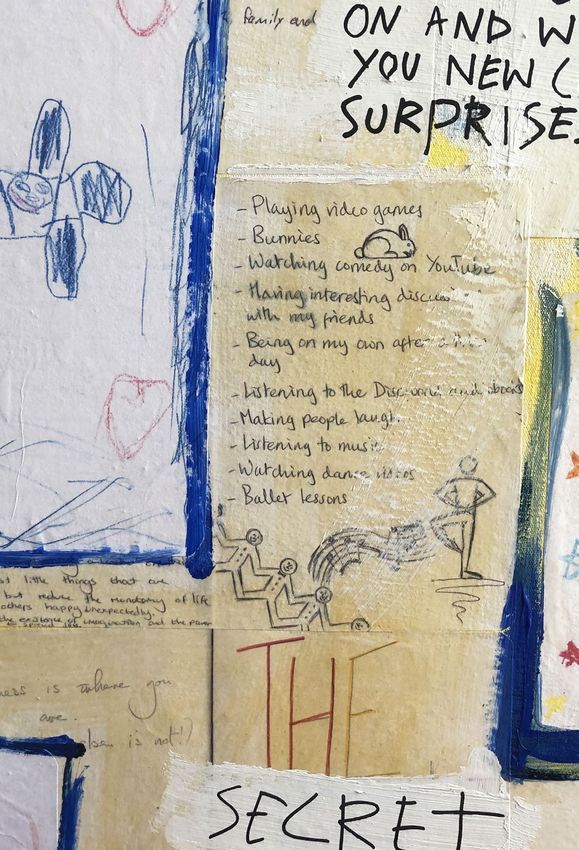 family and
ON AND W
YOU NEW
SURPRISE
- Playing video games
- Bunnies
- Watching comedy on YouTube
- Having interesting
with my friends
- Being on my own after a
day
- Listening to the Discworld audiobooks
- Making people laugh
- Listening to music
- Watching dance videos
- Ballet lessons
little things that are
but reduce the monotony of life
others happy unexpectedly.
the existence of imagination and the power
ness is where you
are.
is not!)
THE
SECRET